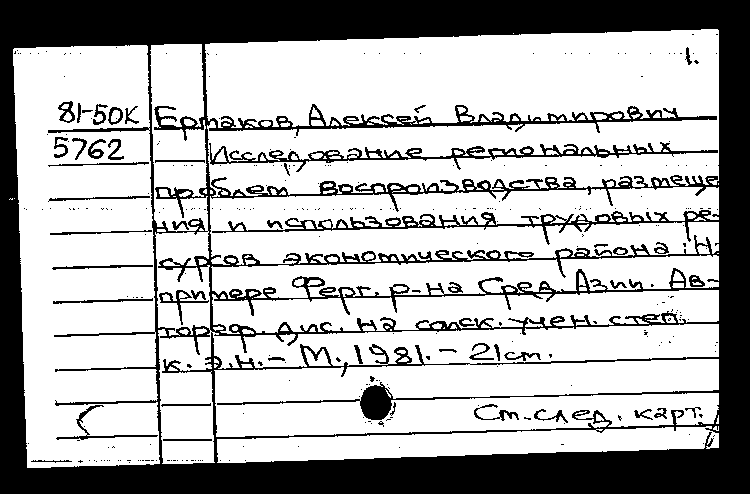 1.
81-50К Ермаков, Алексей Владимирович
5762 Исследование региональных
проблем воспроизводства, размеще
ния и использования трудовых ре-
сурсов экономического района: На
примере Ферг. р-на Сред. Азии. Ав-
тореф. дис. на соиск. учен. степ.
к. э.н. - М., 1981. - 21 ст.
См. след. карт.